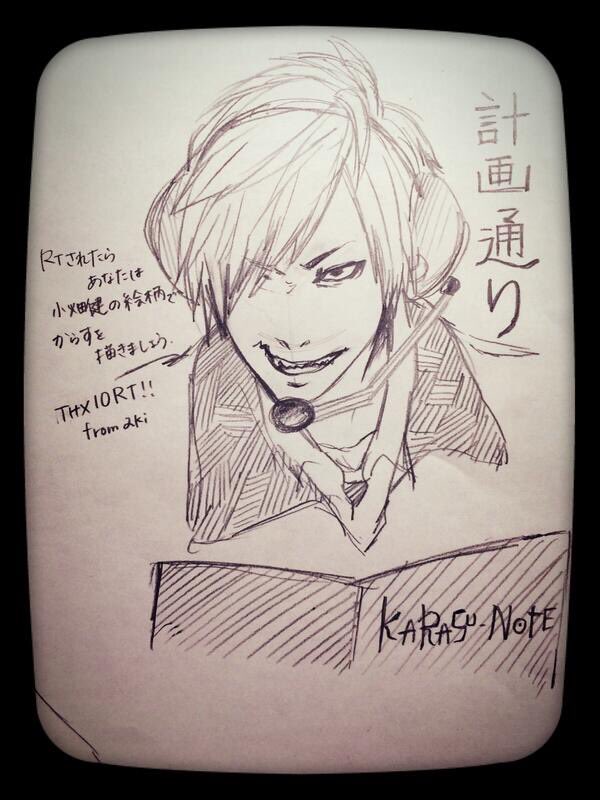 計画通り
RTされたら
あなたは
小畑健の絵柄で
からすを
描きましょう.
THX10RT!!
from aki
KARASU-NOTE